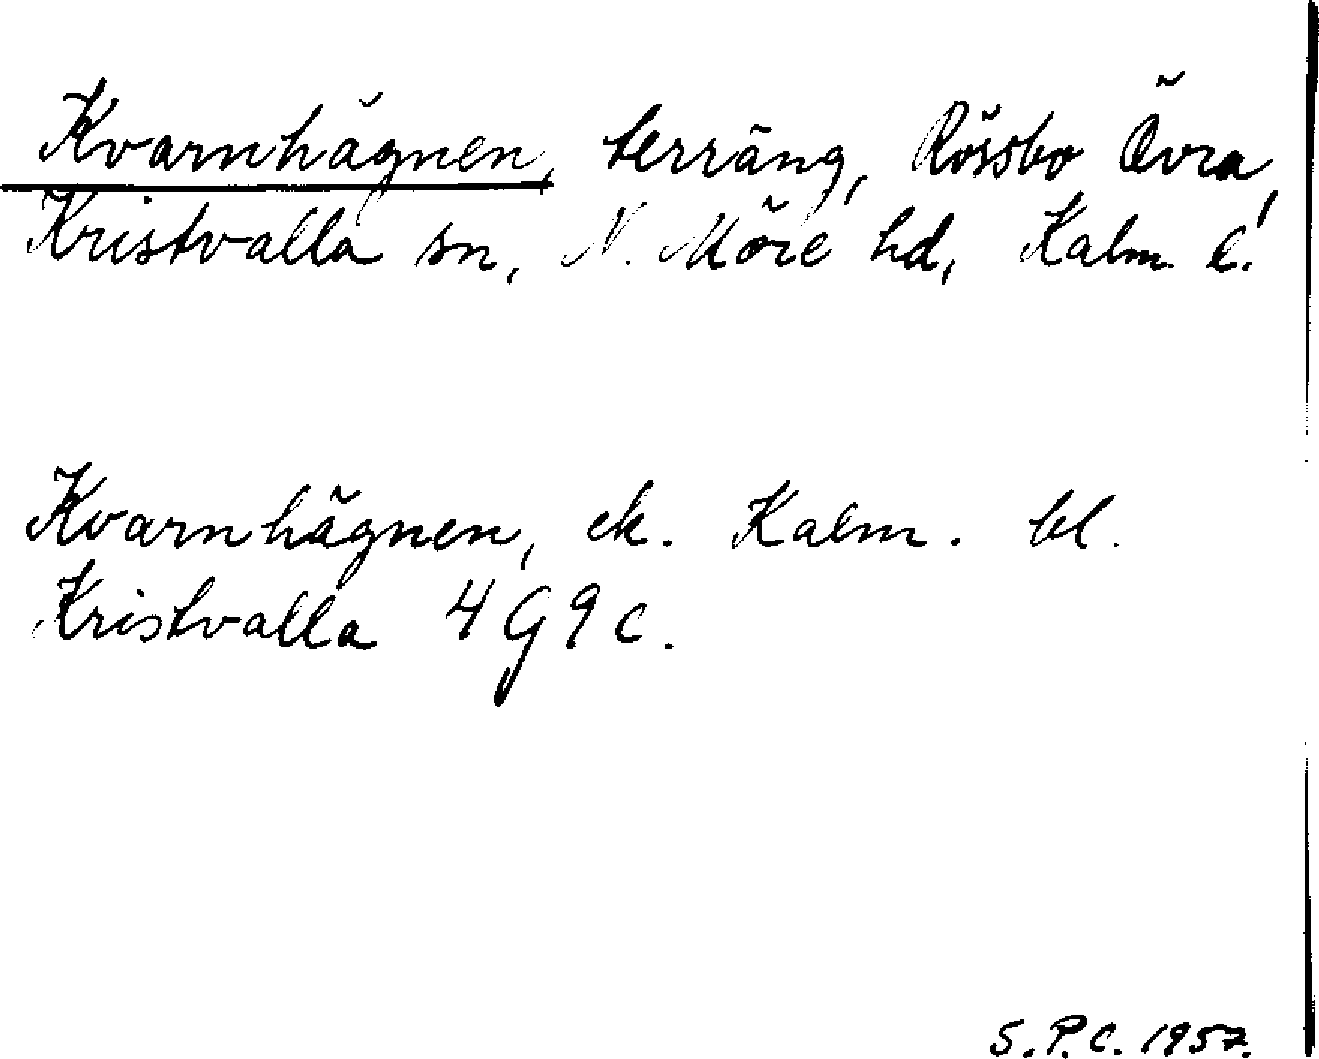 Kvarnhägnen, terräng, Rössbo Övra,
Kristvalla sn, N. Möre hd, Kalm. l.
Kvarnhägnen, ek. Kalm. bl.
Kristvalla 4G9c.
S.P.C. 1957.